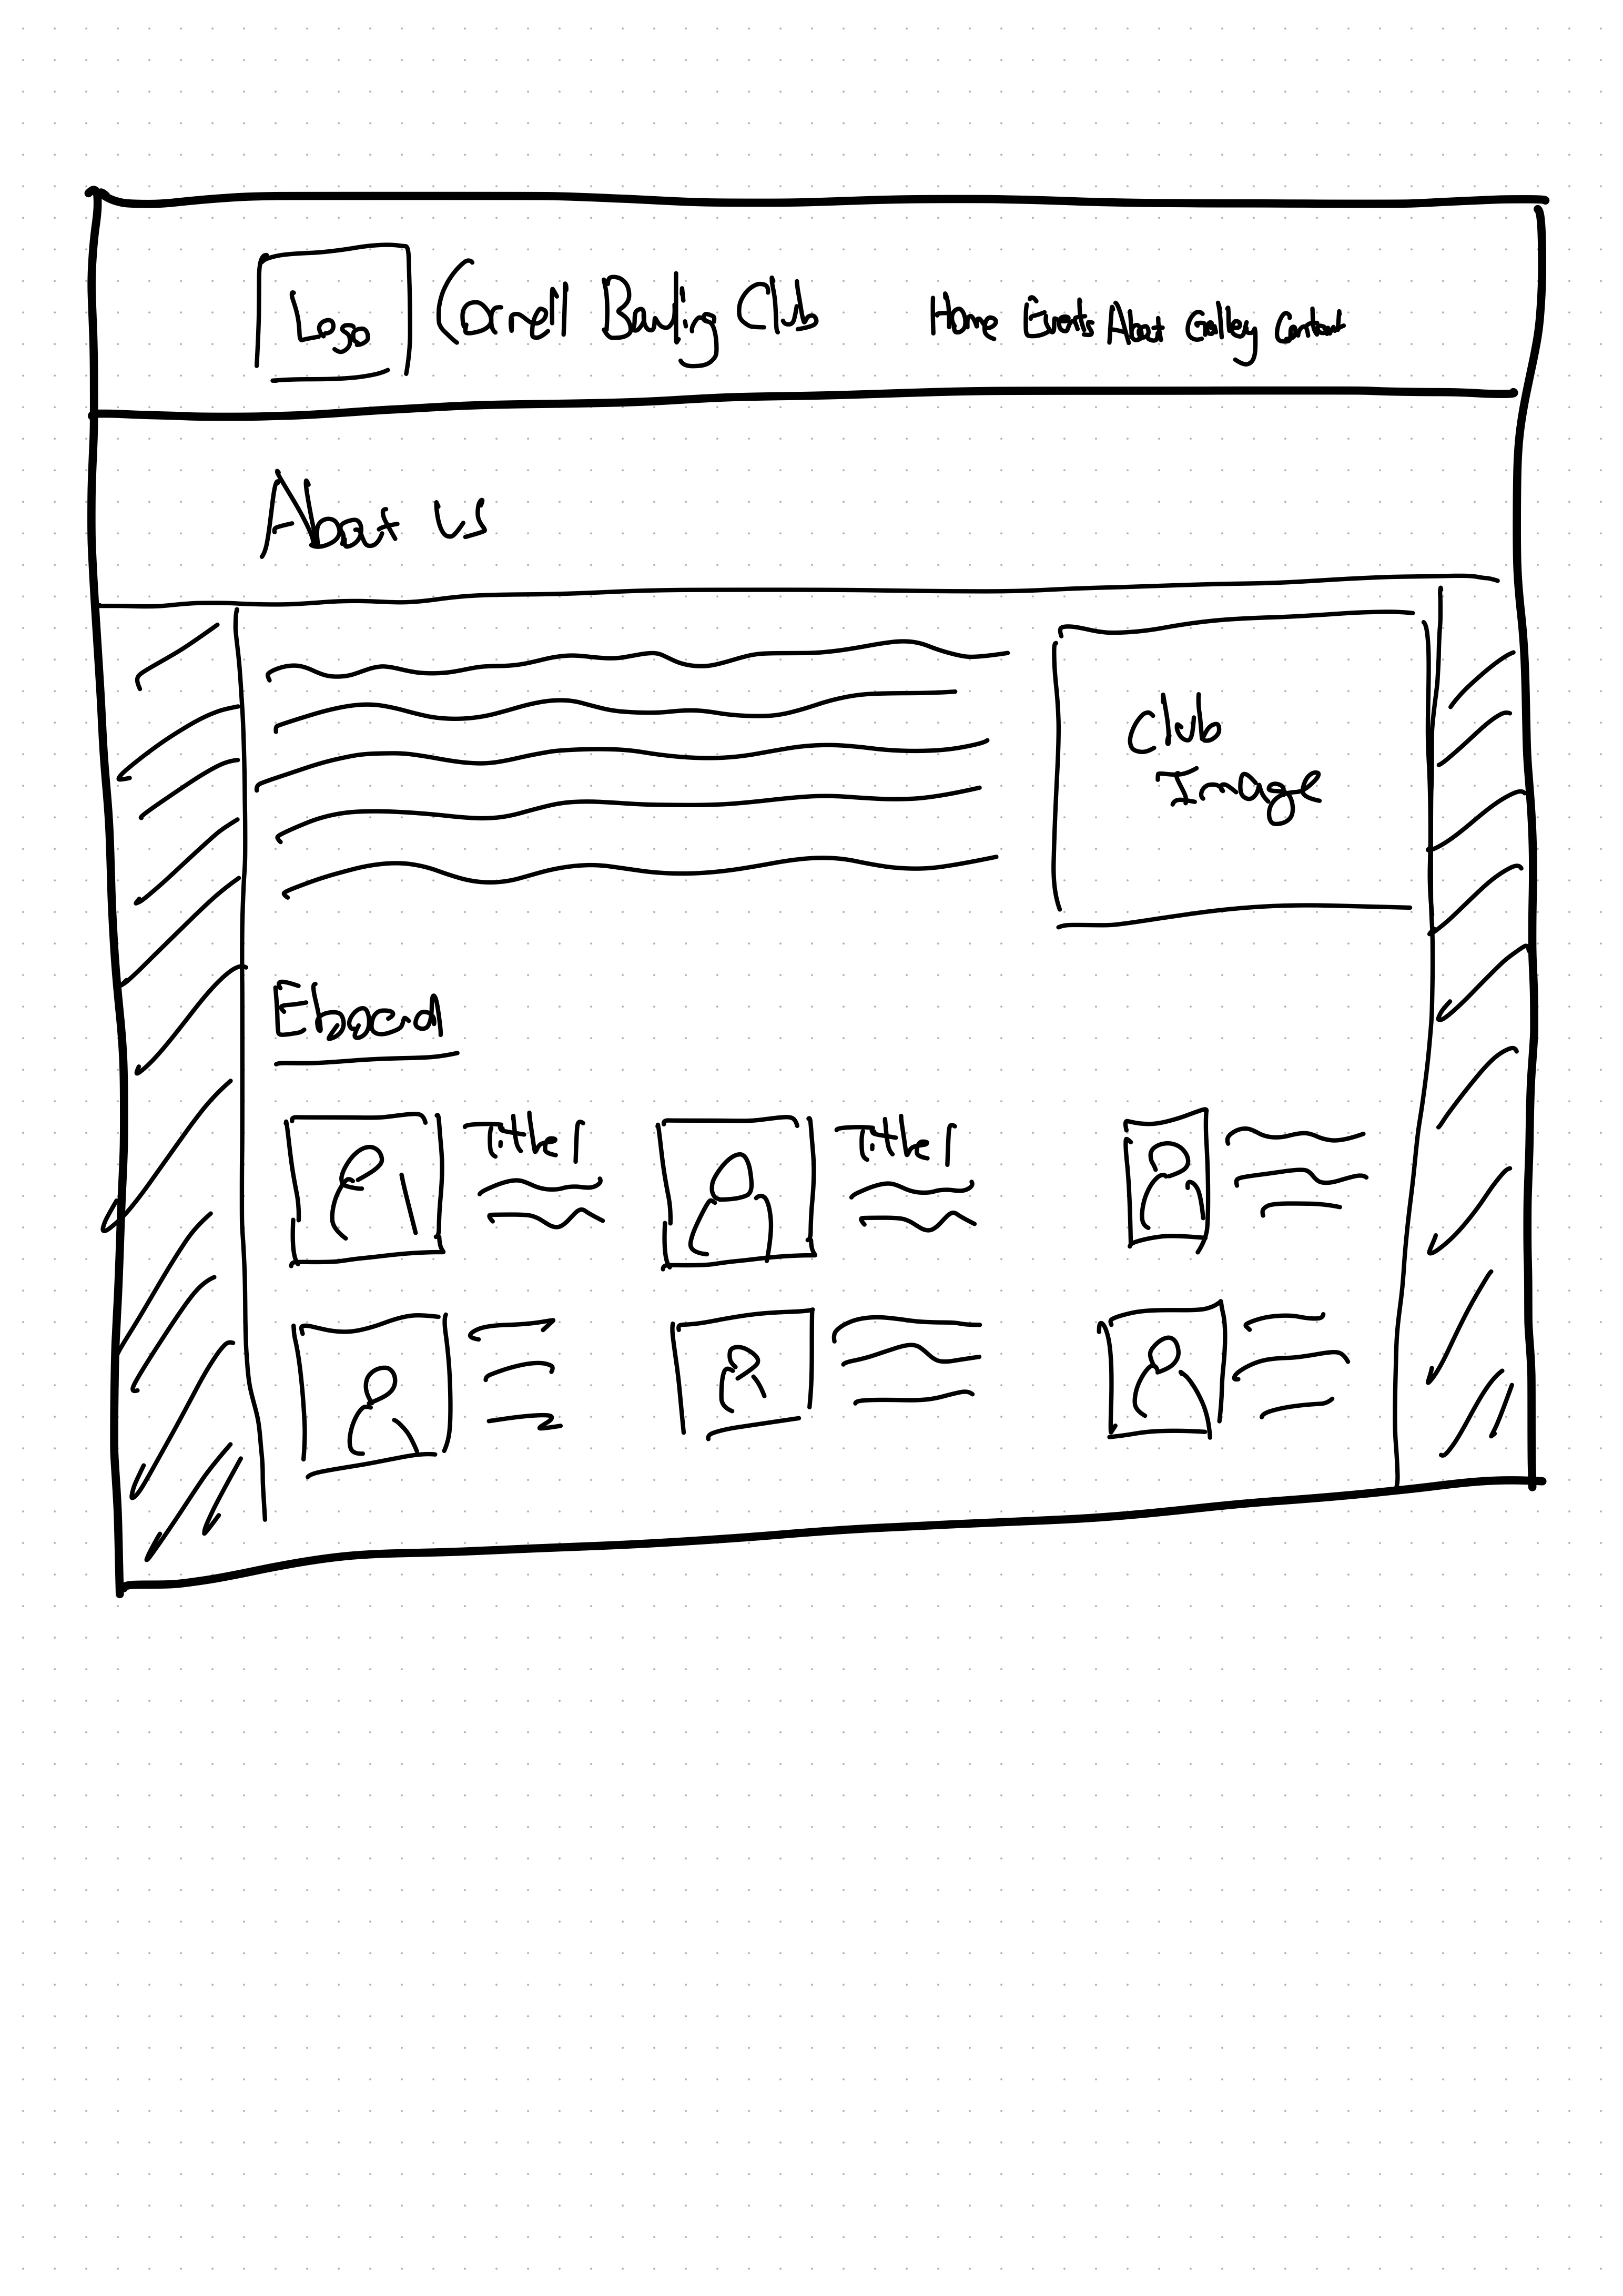 Logo
Cornell Bowling Club
Home Events About Gallery Contact
About us
Club
Image
Eboard
Title 1
Title 1